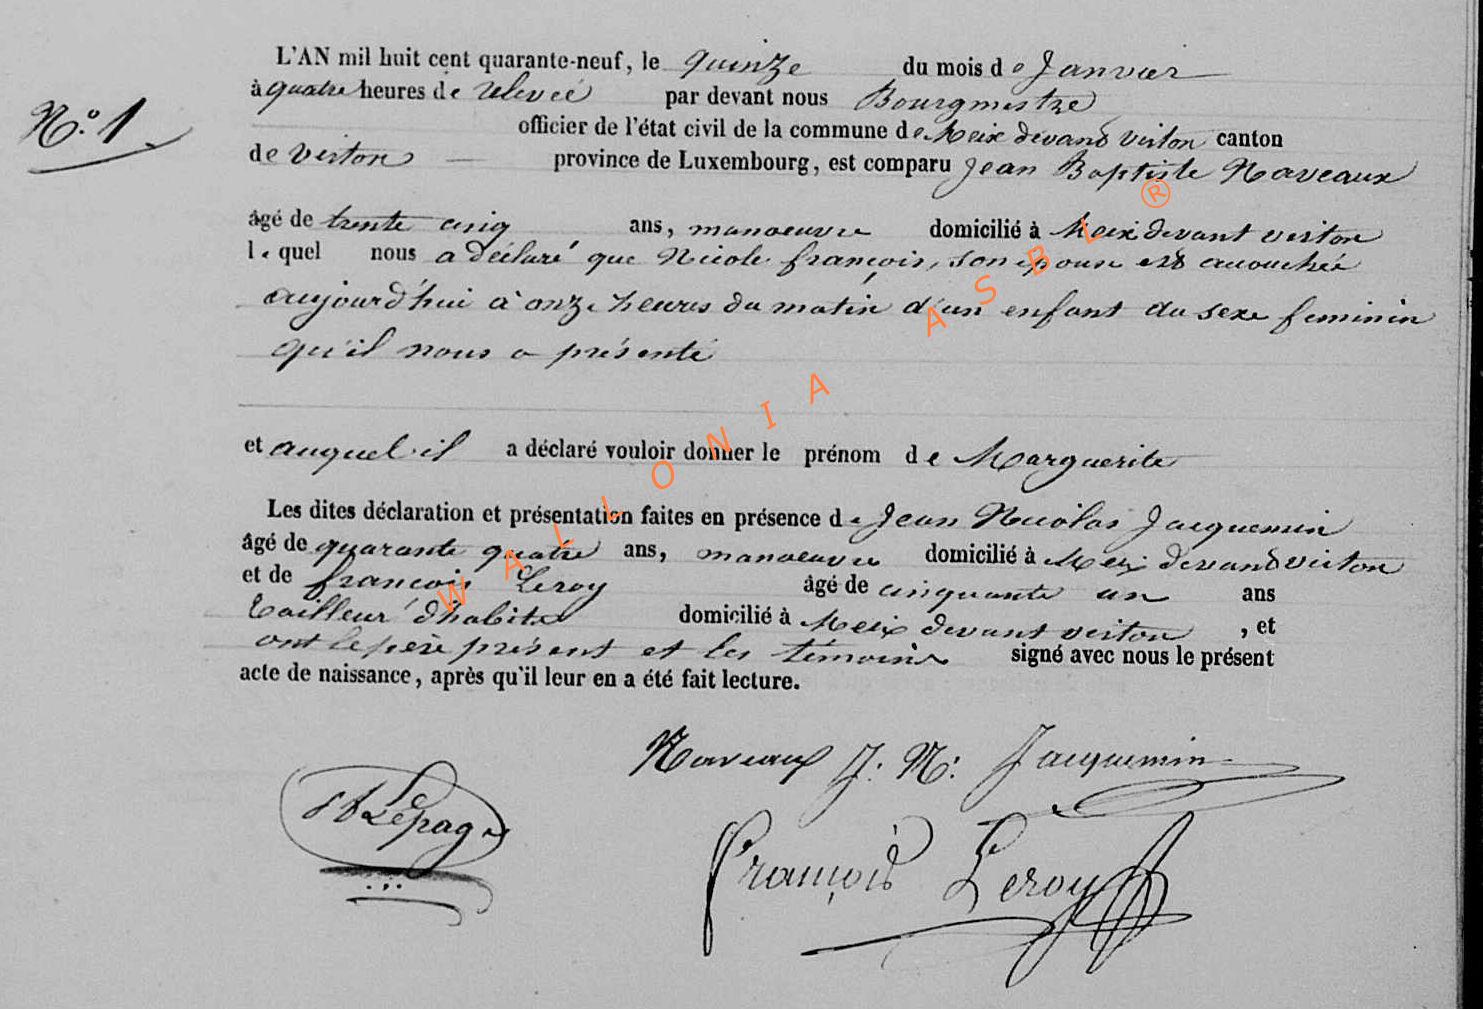 L'AN mil huit cent quarante-neuf, le quinze du mois de Janvier
N.o 1
à quatre heures de relevée par devant nous Bourgmestre
officier de l'état civil de la commune de Meix devant virton canton
de virton — province de Luxembourg, est comparu Jean Baptiste Naveaux
âgé de trente cinq ans, manoeuvre domicilié à Meix devant virton
lequel nous a déclaré que Nicole françois, son épouse est accouchée
aujourd'hui à onze heures du matin d'un enfant du sexe feminin
qu'il nous a présenté
et auquel il a déclaré vouloir donner le prénom de Marguerite
Les dites déclaration et présentation faites en présence de Jean Nicolas Jacquemin
âgé de quarante quatre ans, manoeuvre domicilié à Meix devant virton
et de françois Leroy âgé de cinquante un ans
tailleur d'habits domicilié à Meix devant virton , et
ont le père présent et les témoins signé avec nous le présent
acte de naissance, après qu'il leur en a été fait lecture.
Naveaux J: N: Jacquemin
Lepage
François Leroy
WALLONIA ASBL ®